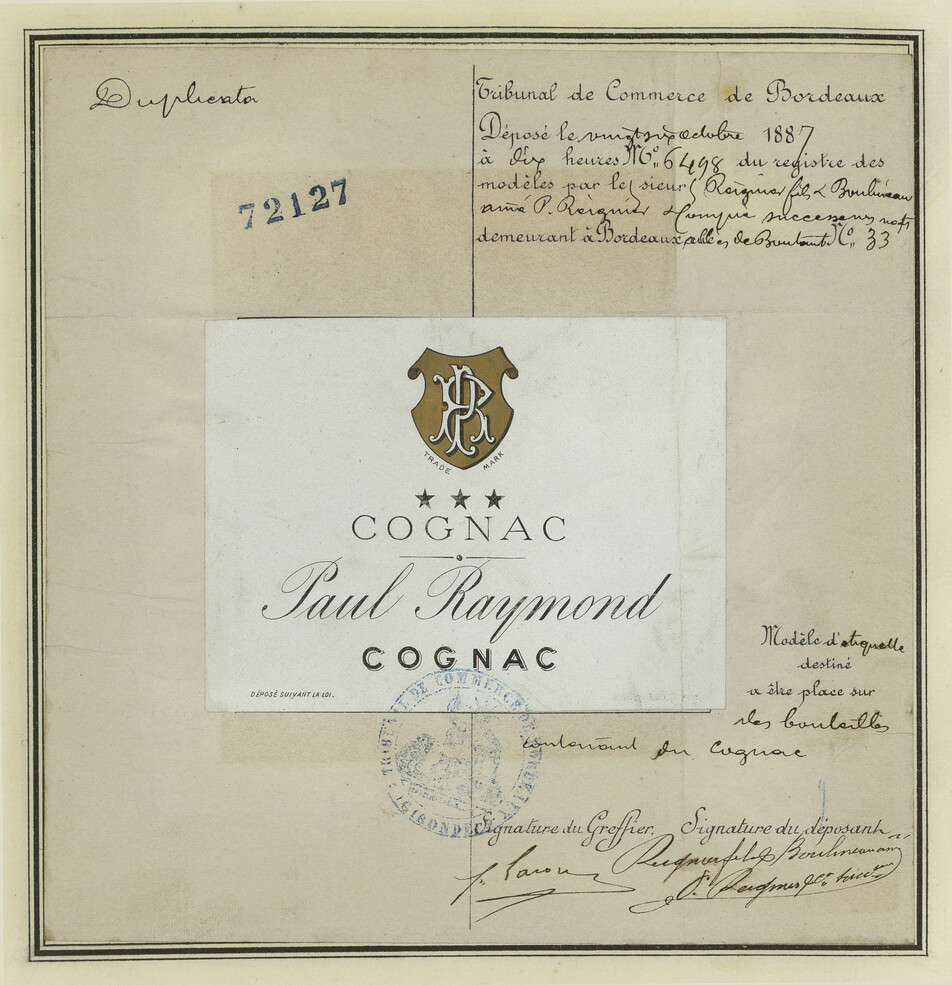 Duplicata
Tribunal de Commerce de Bordeaux
Déposé le vingt six octobre 1887
à dix heures No. 6498 du registre des
modèles par le sieur Reignier fils & Boulineau
ainé P. Reignier & Compie successeurs nots
demeurant à Bordeaux allées de Boutaut No. 33
72127
PR
TRADE MARK
COGNAC
Paul Raymond
COGNAC
DÉPOSÉ SUIVANT LA LOI.
Modèle d'étiquette
destiné
a être place sur
des bouteilles
contenant du cognac
TRIBUNAL DE COMMERCE DE BORDEAUX
(GIRONDE)
Signature du Greffier. Signature du déposant
Reignier fils & Boulineau ainé
P. Reignier & Cie